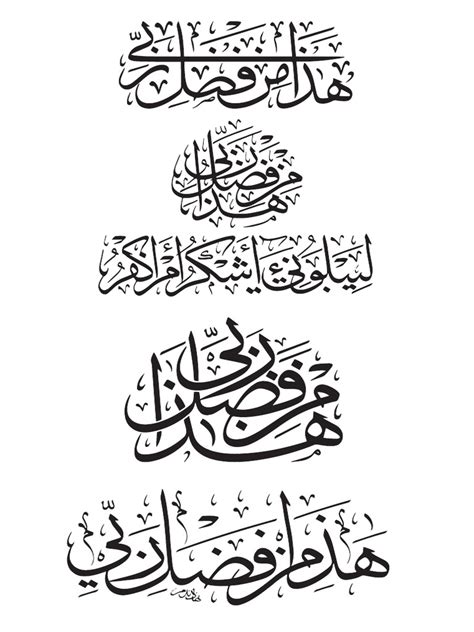 هَذَا مِنْ فَضْلِ رَبِّي
هذا من فضل ربي
لِيَبْلُوَنِيٓ ءَأَشْكُرُ أَمْ أَكْفُرُ
هذا من فضل ربي
هَذَا مِنْ فَضْلِ رَبِّي